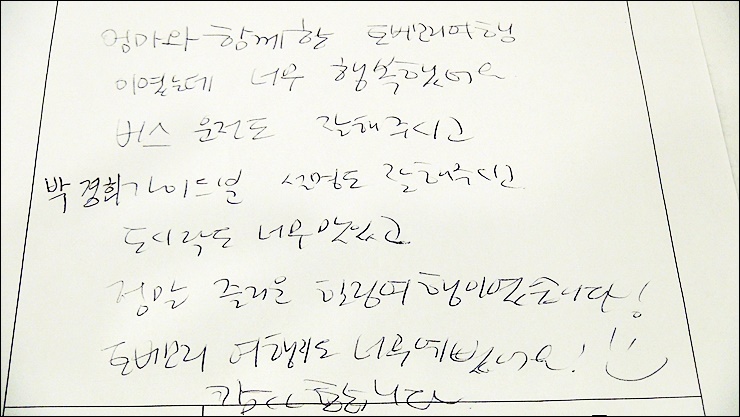 엄마와 함께한 토베리여행
이였는데 너무 행복했어요
버스 운전도 잘해주시고
박경희가이드분 설명도 잘해주시고
도시락도 너무맛있고
정말 즐거운 힐링여행이였습니다!
토베리 여행지도 너무예뻤어요! :)
감사합니다